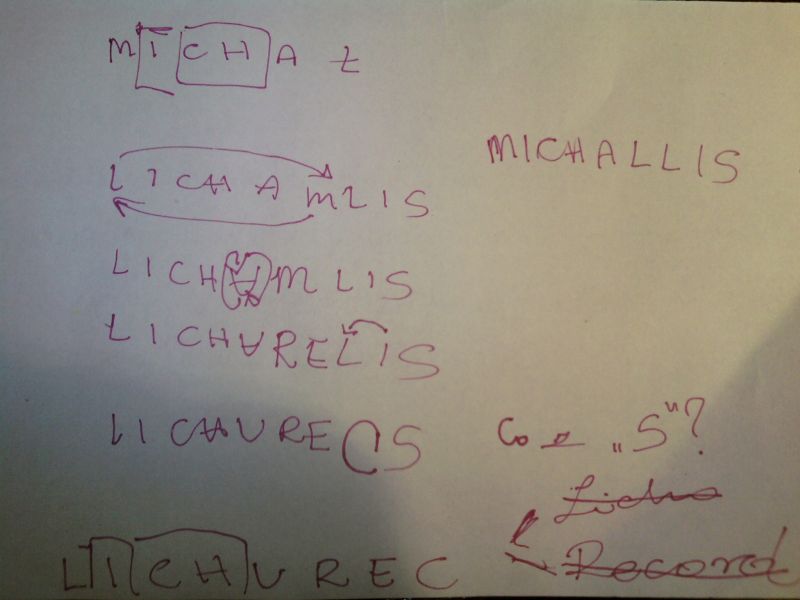 MICHAŁ
MICHALLIS
LICHAMLIS
LICHAMLIS
ŁICHURELIS
LICHURECS
Co z „S"?
Licho
Record
LICHUREC